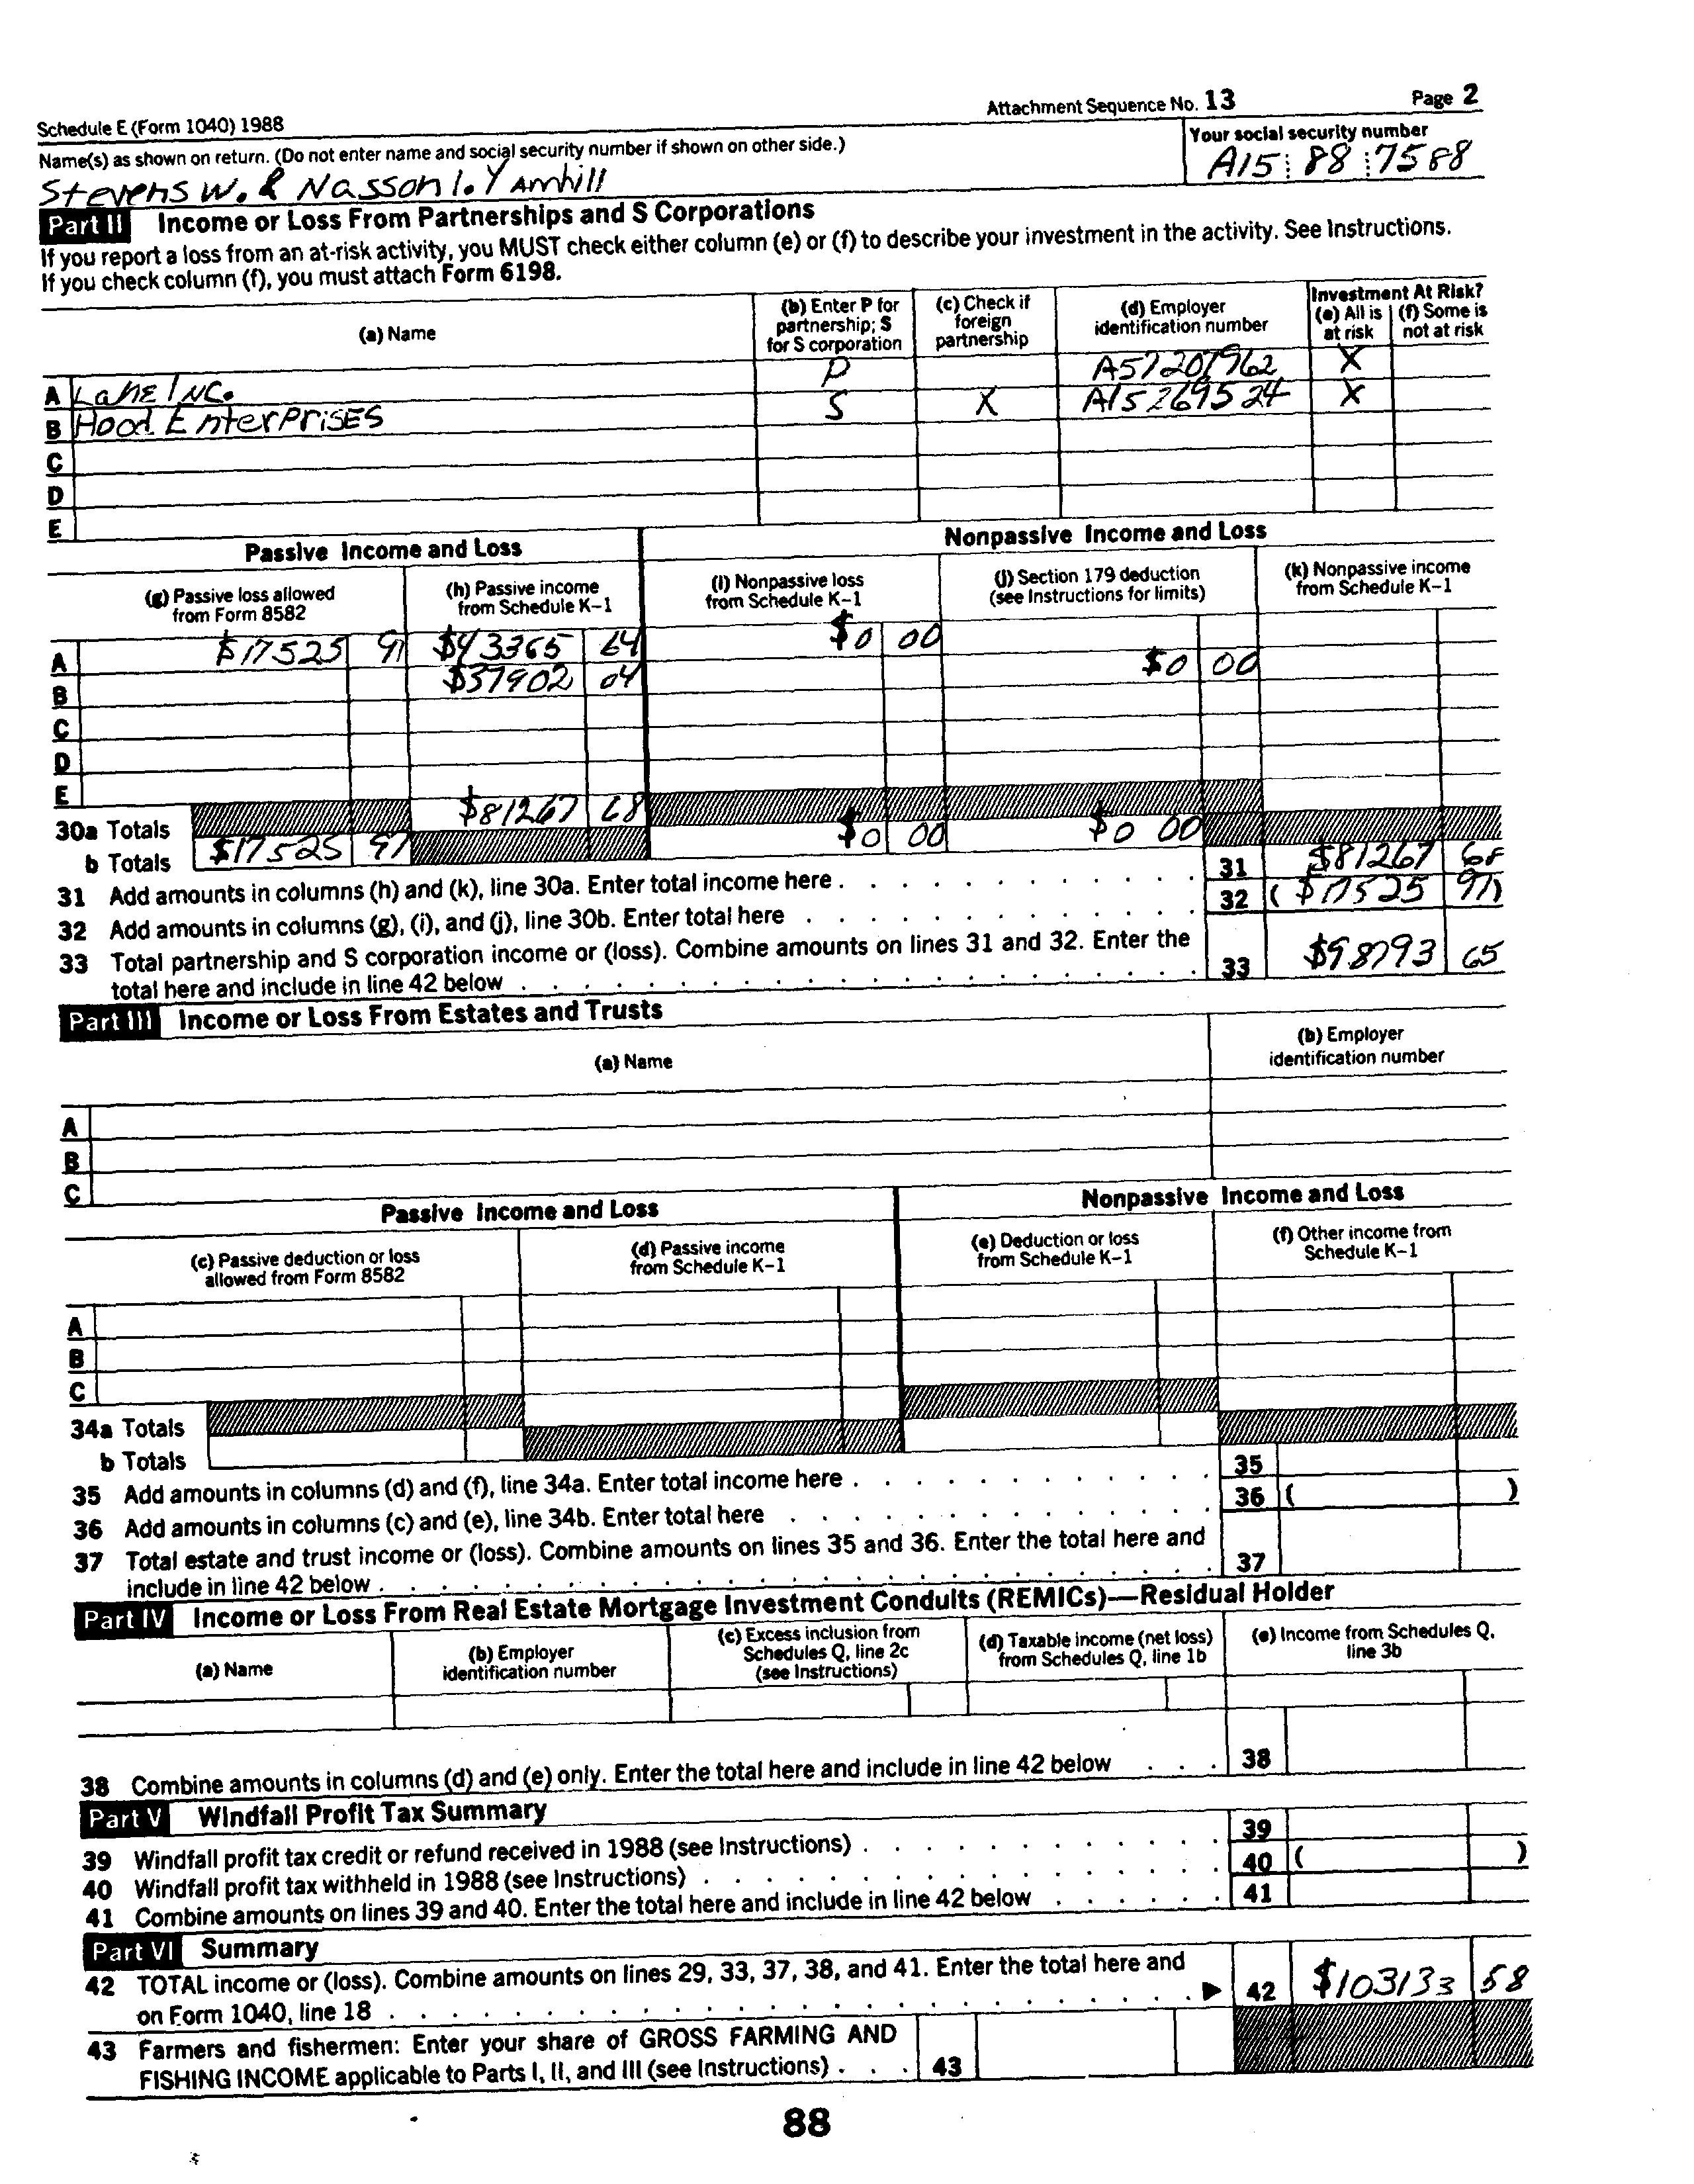 Attachment Sequence No. 13 Page 2
Schedule E (Form 1040) 1988
Name(s) as shown on return. (Do not enter name and social security number if shown on other side.) Your social security number
Stevens W. & Nasson I. Yamhill A15 88 7588
Part II Income or Loss From Partnerships and S Corporations
If you report a loss from an at-risk activity, you MUST check either column (e) or (f) to describe your investment in the activity. See Instructions.
If you check column (f), you must attach Form 6198.
(a) Name
(b) Enter P for partnership; S for S corporation
(c) Check if foreign partnership
(d) Employer identification number
Investment At Risk?
(e) All is at risk
(f) Some is not at risk
A Lane Inc. P A57201962 X
B Hood Enterprises S X A15269524 X
C
D
E
Passive Income and Loss Nonpassive Income and Loss
(g) Passive loss allowed from Form 8582
(h) Passive income from Schedule K–1
(i) Nonpassive loss from Schedule K–1
(j) Section 179 deduction (see Instructions for limits)
(k) Nonpassive income from Schedule K–1
A $17525 91 $43365 64 $0 00
B $37902 04 $0 00
C
D
E
30a Totals $81267 68
b Totals $17525 97 $0 00 $0 00
31 Add amounts in columns (h) and (k), line 30a. Enter total income here 31 $81267 68
32 Add amounts in columns (g), (i), and (j), line 30b. Enter total here 32 ( $17525 97)
33 Total partnership and S corporation income or (loss). Combine amounts on lines 31 and 32. Enter the
total here and include in line 42 below 33 $98793 65
Part III Income or Loss From Estates and Trusts
(a) Name
(b) Employer identification number
A
B
C
Passive Income and Loss Nonpassive Income and Loss
(c) Passive deduction or loss allowed from Form 8582
(d) Passive income from Schedule K–1
(e) Deduction or loss from Schedule K–1
(f) Other income from Schedule K–1
A
B
C
34a Totals
b Totals
35 Add amounts in columns (d) and (f), line 34a. Enter total income here 35
36 Add amounts in columns (c) and (e), line 34b. Enter total here 36 ( )
37 Total estate and trust income or (loss). Combine amounts on lines 35 and 36. Enter the total here and
include in line 42 below 37
Part IV Income or Loss From Real Estate Mortgage Investment Conduits (REMICs)—Residual Holder
(a) Name
(b) Employer identification number
(c) Excess inclusion from Schedules Q, line 2c (see Instructions)
(d) Taxable income (net loss) from Schedules Q, line 1b
(e) Income from Schedules Q, line 3b
38 Combine amounts in columns (d) and (e) only. Enter the total here and include in line 42 below 38
Part V Windfall Profit Tax Summary
39 Windfall profit tax credit or refund received in 1988 (see Instructions) 39
40 Windfall profit tax withheld in 1988 (see Instructions) 40 ( )
41 Combine amounts on lines 39 and 40. Enter the total here and include in line 42 below 41
Part VI Summary
42 TOTAL income or (loss). Combine amounts on lines 29, 33, 37, 38, and 41. Enter the total here and
on Form 1040, line 18 ▶ 42 $103133 58
43 Farmers and fishermen: Enter your share of GROSS FARMING AND
FISHING INCOME applicable to Parts I, II, and III (see Instructions) 43
88